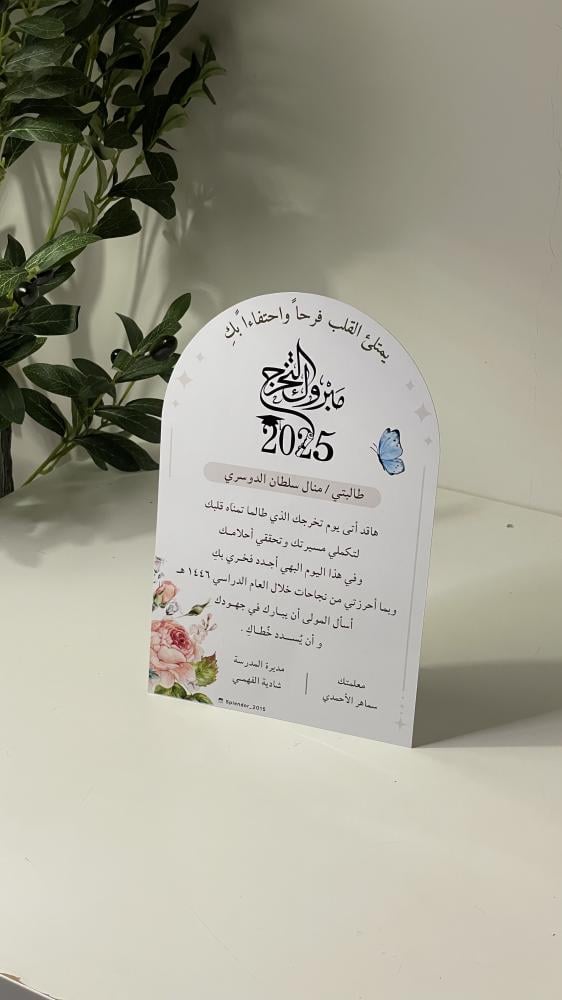 يمتلئ القلب فرحاً واحتفاءاً بكِ
مبروك التخرج
2025
طالبتي / منال سلطان الدوسري
هاقد أتى يوم تخرجك الذي طالما تمناه قلبك
لتكملي مسيرتك وتحققي أحلامـك
وفي هذا اليوم البهي أجـدد فخـري بكِ
وبما أحرزتي من نجاحات خلال العام الدراسي ١٤٤٦ هـ
أسأل المولى أن يبـارك في جهـودك
و أن يُســدد خُطـاكِ .
معلمتك
سماهر الأحمدي
مديرة المدرسة
شادية الفهمي
Splendor_2015